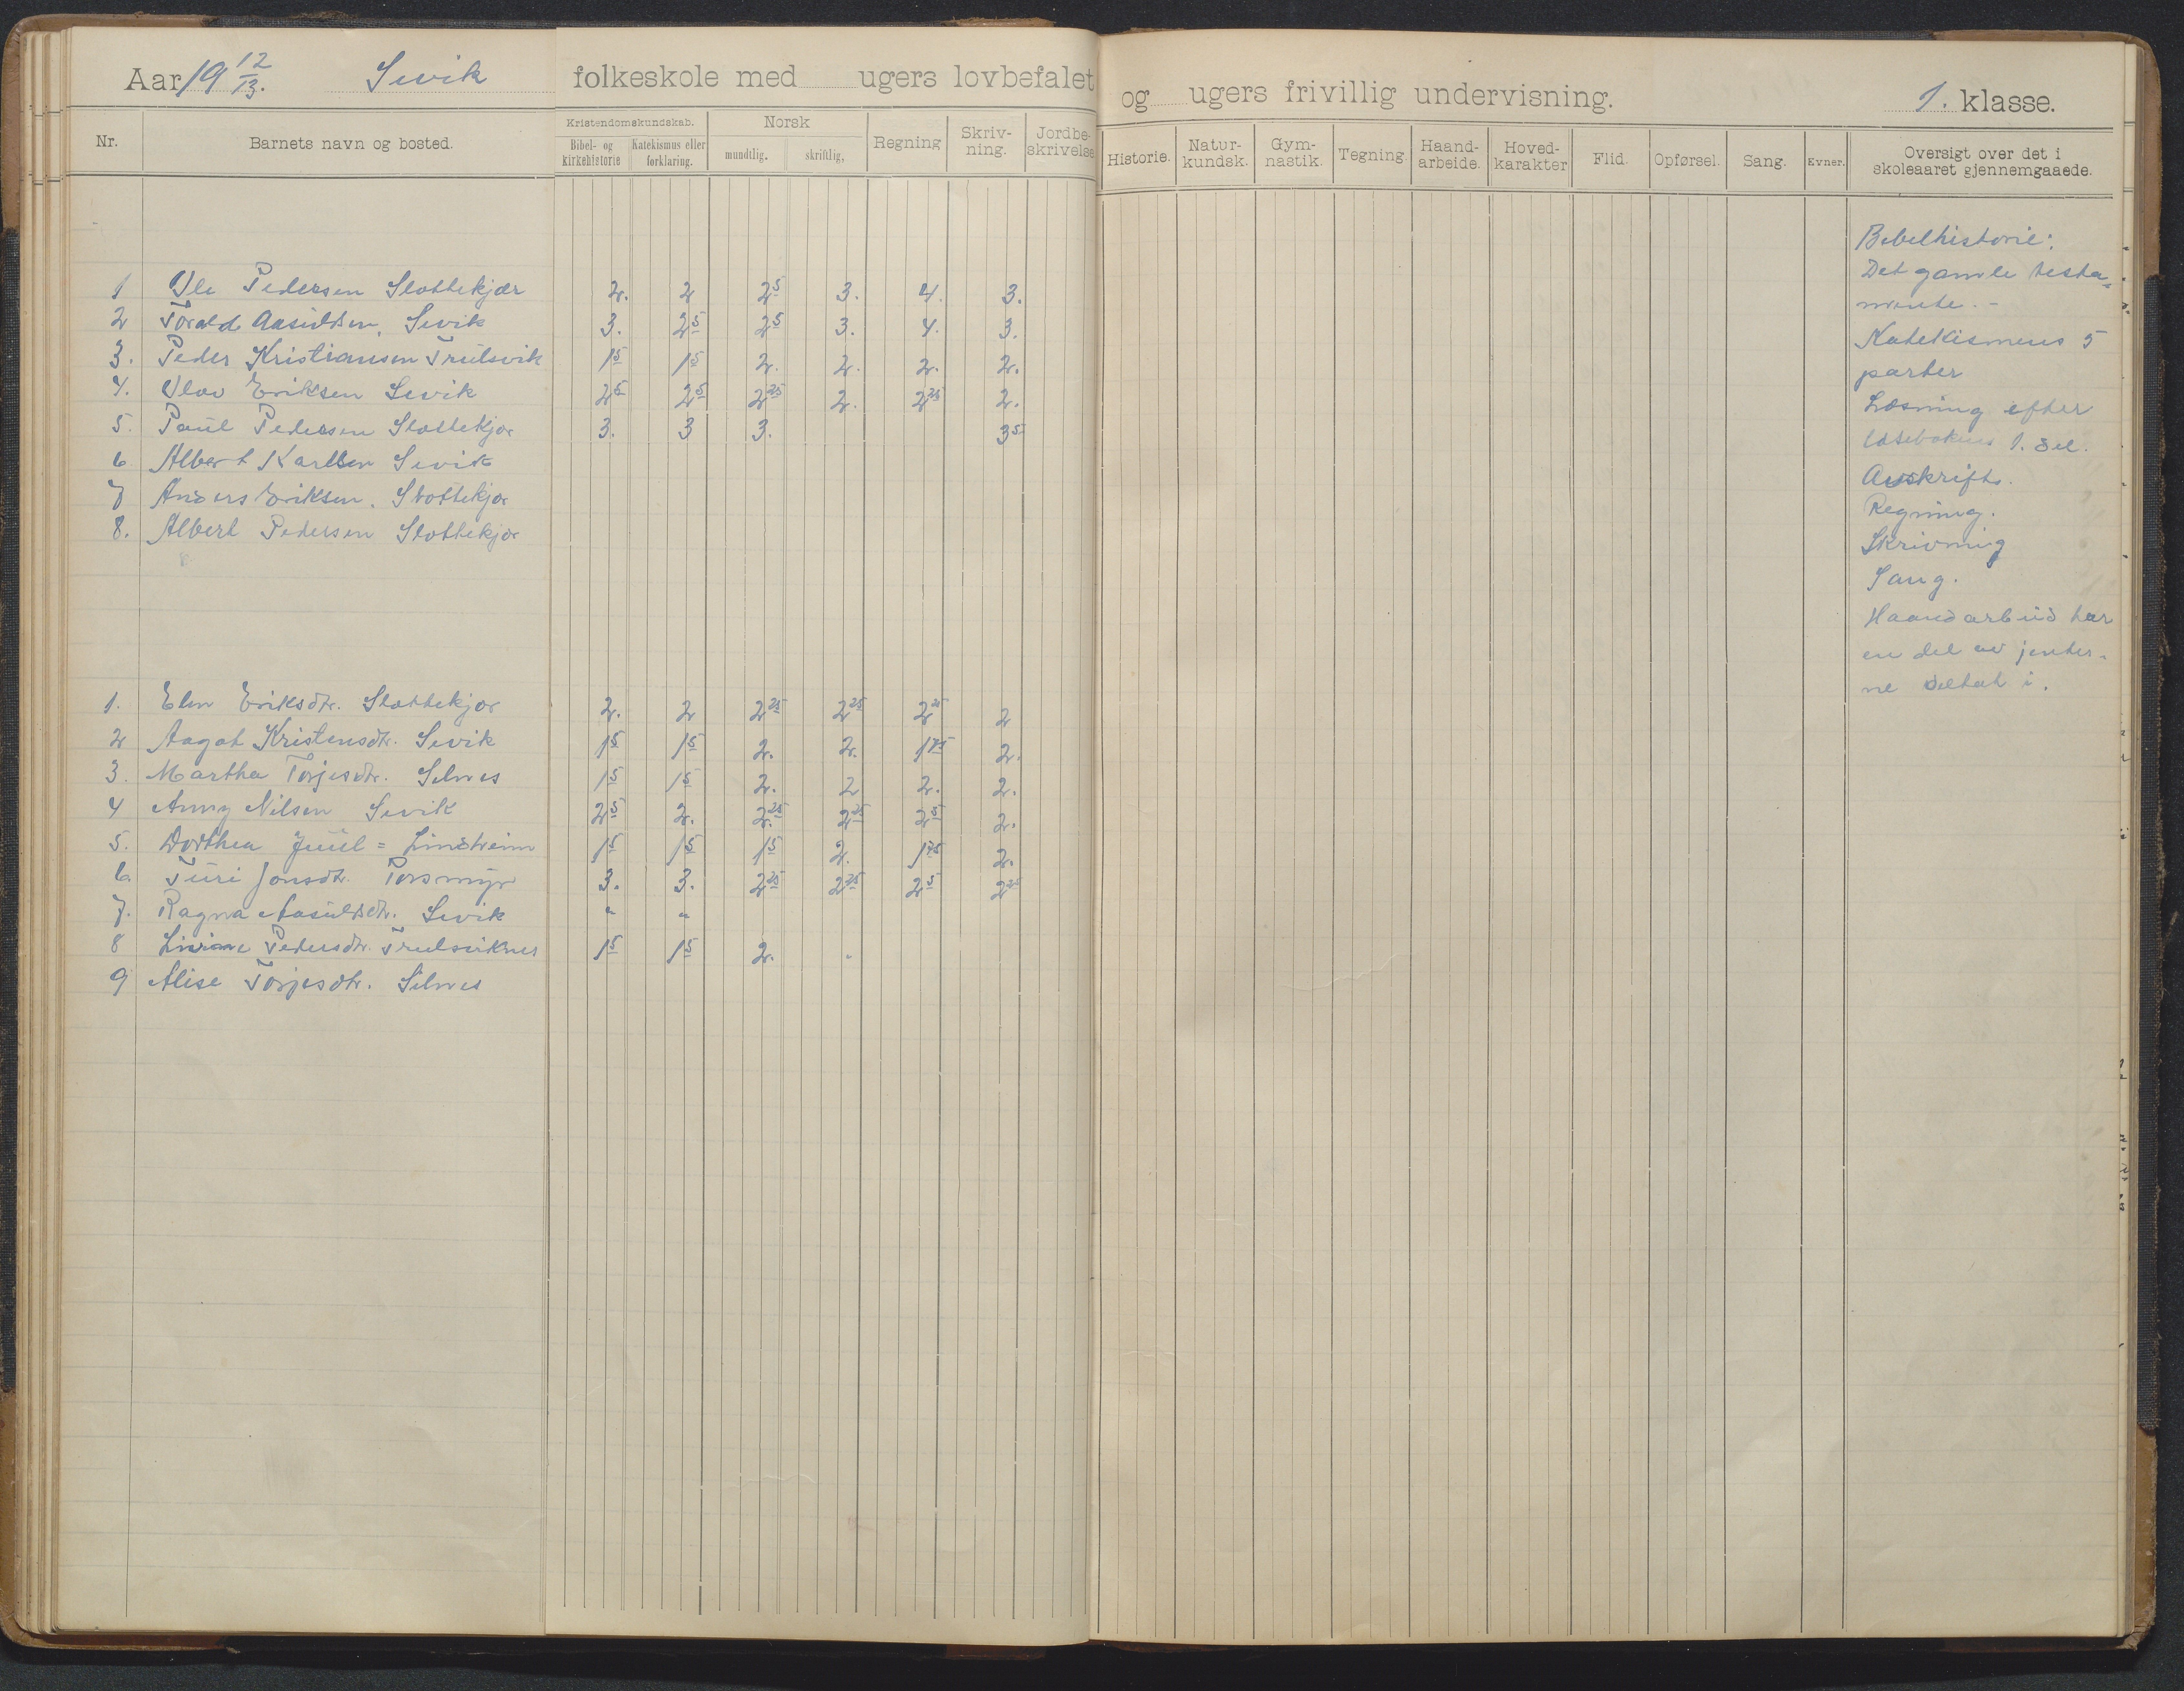 Aar 19 12/13. Sevik folkeskole med ugers lovbefalet og ugers frivillig undervisning. 1. klasse.
Nr. Barnets navn og bosted. Kristendomskundskab. Bibel- og kirkehistorie Katekismus eller forklaring. Norsk mundtlig. skriftlig. Regning Skriv-ning. Jordbe-skrivelse Historie. Natur-kundsk. Gym-nastik. Tegning. Haand-arbeide. Hoved-karakter Flid. Opførsel. Sang. Evner. Oversigt over det i skoleaaret gjennemgaaede.
1 Ole Pedersen Slottekjær 2. 2 2 5 3. 4. 3.
2 Torald Aasuldsen, Sevik 3. 2 5 2 5 3. 4. 3.
3. Peder Kristiansen Trulsvik 1 5 1 5 2. 2. 2. 2.
4. Olav Eriksen Sevik 2 5 2 5 2 25 2. 2 25 2.
5. Paul Pedersen Slottekjær 3. 3 3. 3 5
6 Albert Karlsen Sevik
7 Anders Eriksen. Slottekjær
8. Albert Pedersen Slottekjær
1. Elen Eriksdtr. Slottekjær 2. 2 2 25 2 25 2 25 2
2 Aagot Kristensdtr. Sevik 1 5 1 5 2. 2. 1 75 2.
3. Martha Torjesdtr. Selnes 1 5 1 5 2. 2 2. 2.
4 Anny Nilsen Sevik 2 5 2. 2 25 2 25 2 5 2.
5. Dorthea Juul = Lindheim 1 5 1 5 1 5 2. 1 75 2.
6. Turi Jonsdtr. Porsmyr 3. 3. 2 25 2 25 2 5 2 25
7. Ragna Aasuldsdtr. Sevik " "
8 Pedersdtr. Trulsviknes 1 5 1 5 2. .
9 Alise Torjesdtr. Selnes
Bibelhistorie:
Det gamle testa-
mente. -
Katekismus 5
parter
Læsning efter
læsebokens 1. del.
Avskrift.
Regning.
Skrivning
Sang.
Haandarbeid har
en del av jenter-
ne deltat i.